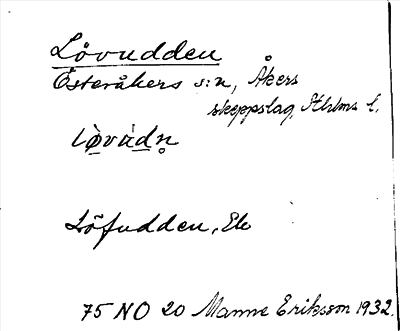 Lövudden
Österåkers s:n, Åkers
skeppslag, Sthlms l.
lø̀vùdn̥
Löfudden, Ek
75 NO 20 Manne Eriksson 1932.